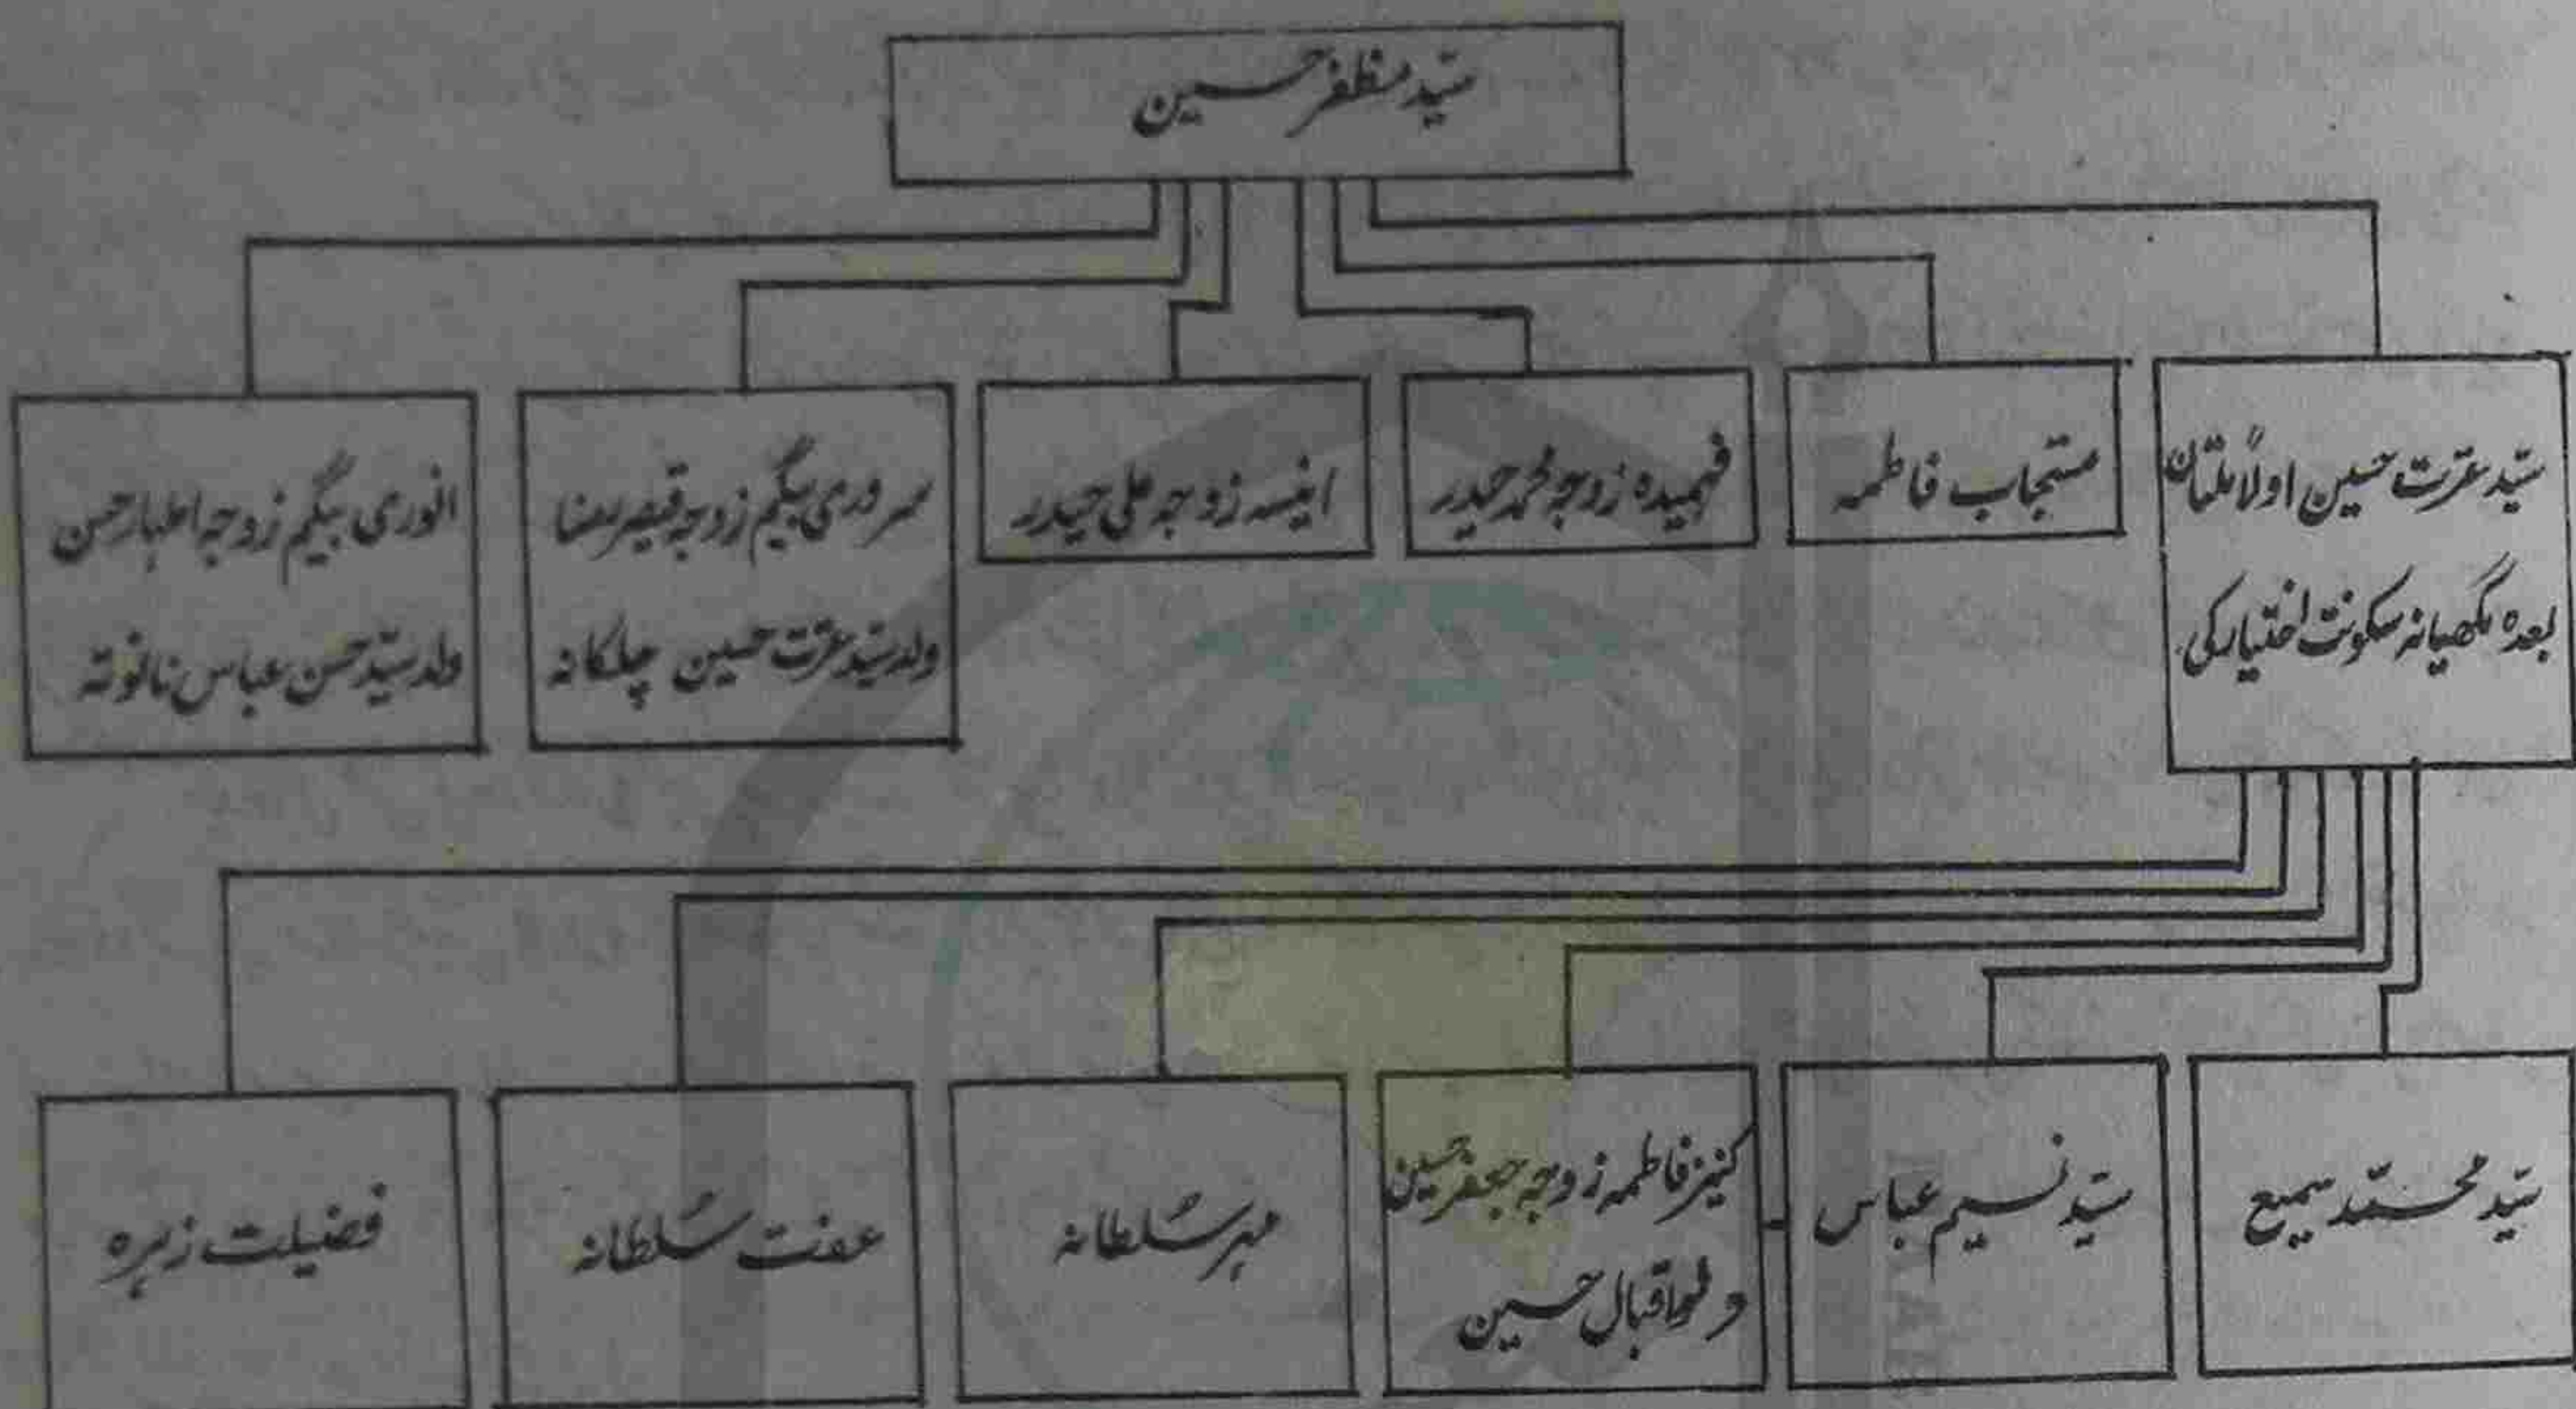 سیّد مظفر حسین
سیّد عترت حسین اولاً ملتان
بعدہ مگھیانہ سکونت اختیار کی
مستجاب فاطمہ
فہمیدہ زوجہ محمد حیدر
انیسہ زوجہ علی حیدر
سروری بیگم زوجہ قیصر رضا
ولد سیّد عترت حسین چلکانہ
انوری بیگم زوجہ اظہار حسن
ولد سیّد حسن عباس نانوتہ
سیّد محمّد سمیع
سیّد نسیم عباس
کنیز فاطمہ زوجہ جعفر حسین
ولد اقبال حسین
مہر سُلطانہ
عفت سُلطانہ
فضیلت زہرہ